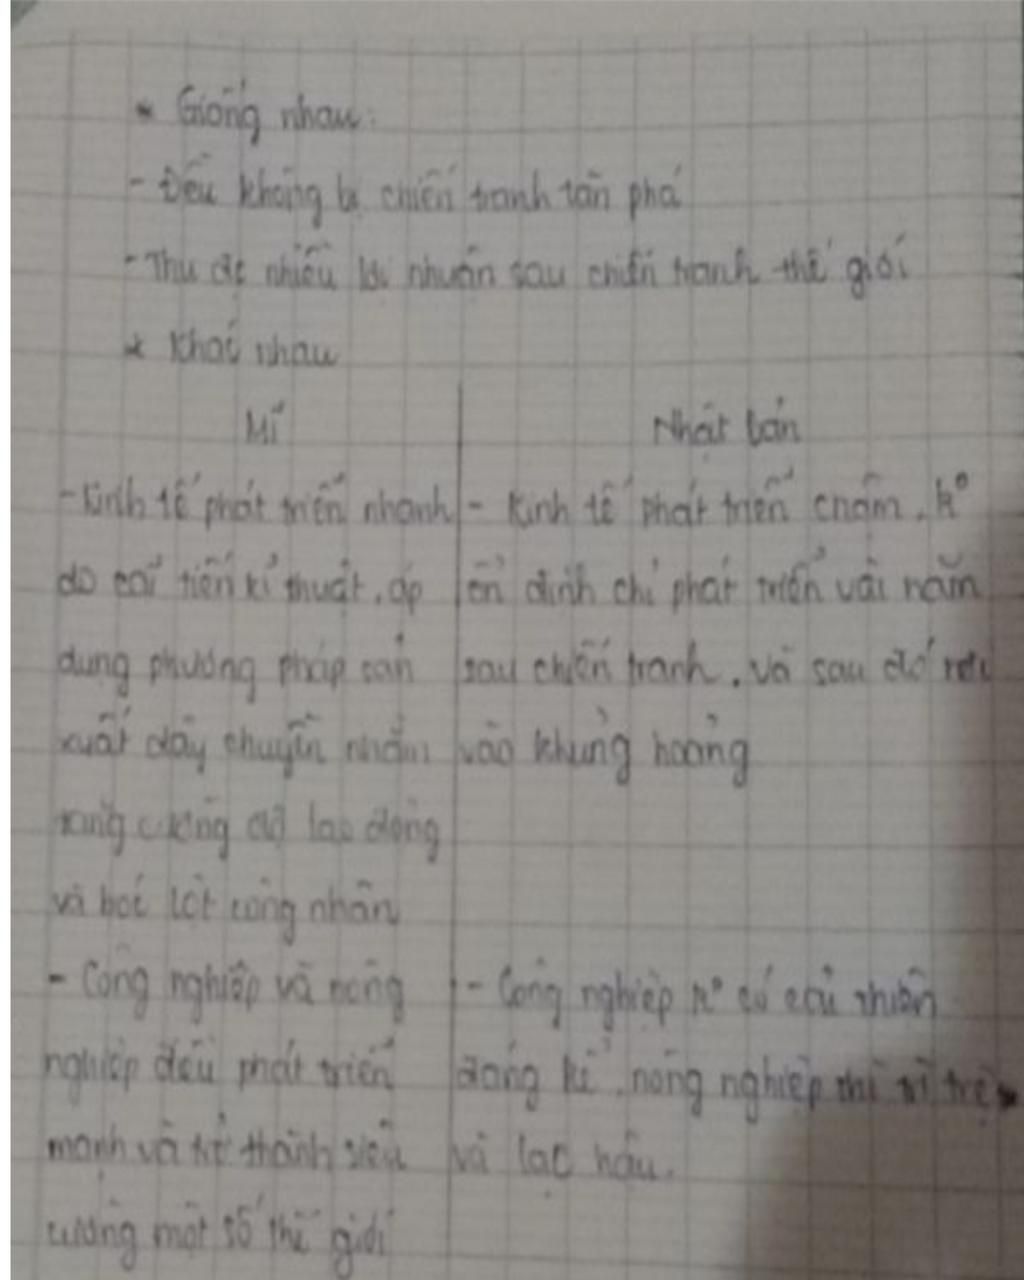 * Giống nhau:
- Đều không bị chiến tranh tàn phá
- Thu đc nhiều lợi nhuận sau chiến tranh thế giới
* Khác nhau
Mĩ
- Kinh tế phát triển nhanh
do cải tiến kĩ thuật, áp
dụng phương pháp sản
xuất dây chuyền nhằm
tăng cường độ lao động
và bóc lột công nhân
- Công nghiệp và nông
nghiệp đều phát triển
mạnh và trở thành siêu
cường một số thế giới
Nhật bản
- Kinh tế phát triển chậm, k°
ổn định chỉ phát triển vài năm
sau chiến tranh, và sau đó rơi
vào khủng hoảng
- Công nghiệp k° có cải thiện
đáng kể, nông nghiệp thì trì trệ
và lạc hậu.